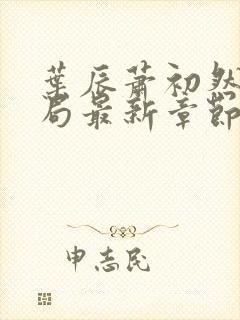 葉辰蕭初然
局最新章節
申志民